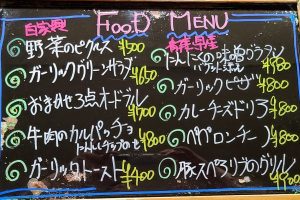 FOOD MENU
自家製
野菜のピクルス ¥500
ガーリックグリーンサラダ ¥650
おまかせ3点オードブル ¥700
牛肉のカルパッチョ ¥800
ガーリックトースト ¥400
青森県産
にんにくの味噌グラタン
バケット添え ¥580
ガーリックピザ ¥800
カレーチーズドリア ¥800
ペペロンチーノ ¥800
豚スペアリブのグリル